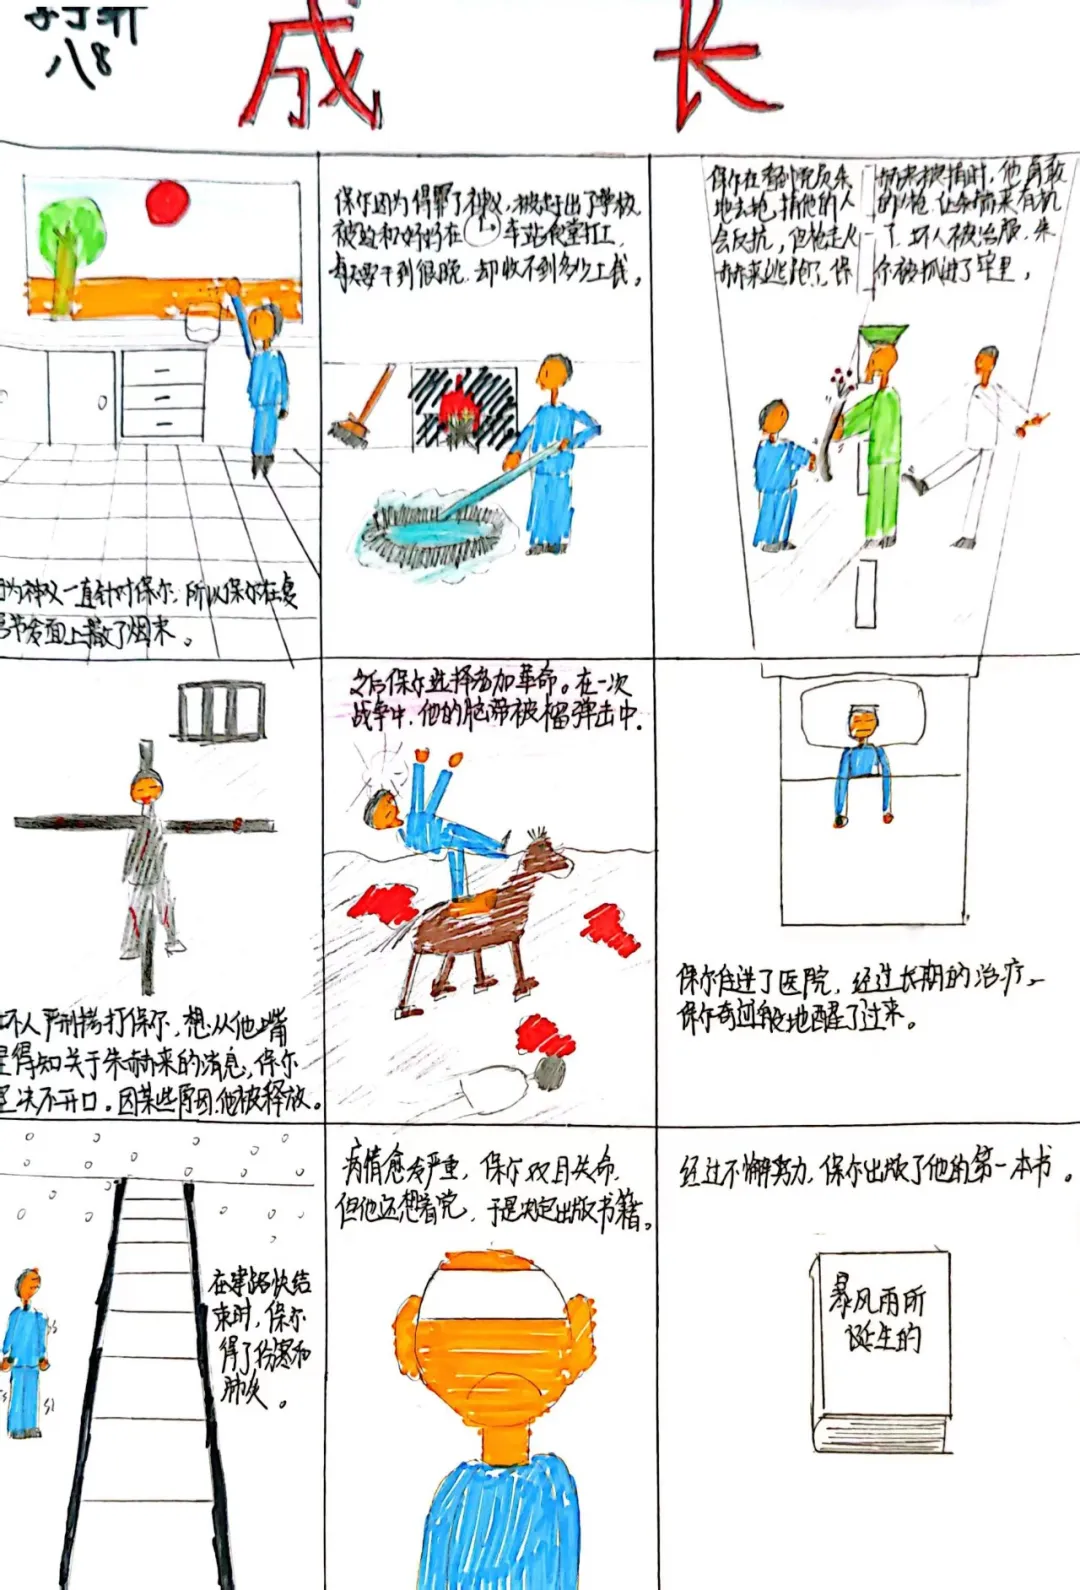 成长
八8
因为神父一直针对保尔,所以保尔在复
活节发面上撒了烟末。
保尔因为得罪了神父,被赶出了学校
被迫和妈妈在车站食堂打工,
每天要干到很晚,却收不到多少工钱。
保尔在看到党员朱赫来被捕时,他勇敢
地去抢捕他的人的枪,让朱赫来有机
会反抗,但枪走火了,坏人被治服,朱
赫来逃跑了,保尔被抓进了牢里。
坏人严刑拷打保尔,想从他嘴
里得知关于朱赫来的消息,保尔
坚决不开口。因某些原因,他被释放。
之后保尔选择参加革命。在一次
战争中,他的脑带被榴弹击中.
保尔住进了医院,经过长期的治疗,
保尔奇迹般地醒了过来。
在建路快结
束时,保尔
得了伤寒和
肺炎。
病情愈发严重,保尔双目失命,
但他还想着党,于是决定出版书籍。
经过不懈努力,保尔出版了他的第一本书。
暴风雨所
诞生的